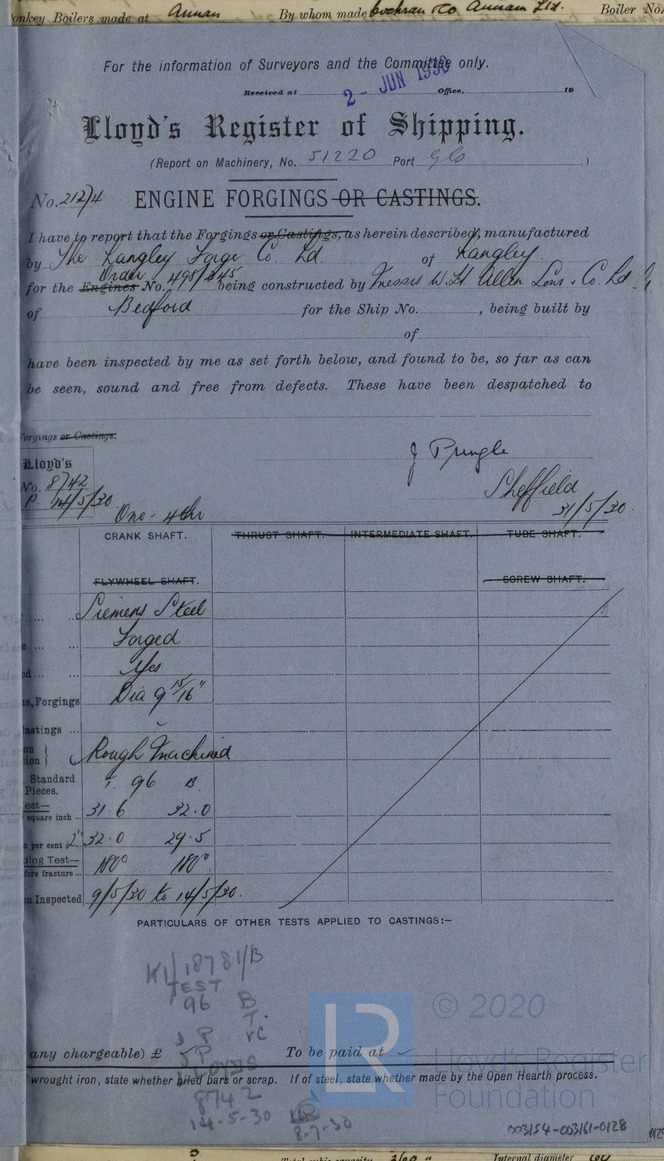 onkey Boilers made at Annan By whom made Cochran & Co Annan Ltd. Boiler No.
For the information of Surveyors and the Committee only.
2 - JUN 1930
Received at Office, 19
Lloyd's Register of Shipping.
(Report on Machinery, No. 51220 Port Gls )
No. 212/4 ENGINE FORGINGS OR CASTINGS.
I have to report that the Forgings or Castings, as herein described, manufactured
by The Langley Forge Co. Ld. of Langley.
Order
for the Engines No. 498/345 being constructed by Messrs W. H. Allen Sons & Co. Ld
of Bedford for the Ship No. , being built by
of
have been inspected by me as set forth below, and found to be, so far as can
be seen, sound and free from defects. These have been despatched to
Forgings or Castings.
J Pringle
Lloyd's
No. 8742
P. 14/5/30
Sheffield
31/5/30.
One - 4thr
CRANK SHAFT. THRUST SHAFT. INTERMEDIATE SHAFT. TUBE SHAFT.
FLYWHEEL SHAFT. SCREW SHAFT.
... ... Siemens Steel
e ... ... Forged
ed ... ... Yes
s, Forgings Dia 9 15/16"
astings ... -
on
tion } Rough Machined
Standard
Pieces. T. 96 B
est—
square inch ... 31.6 32.0
n per cent 2" 32.0 29.5
ding Test—
fore fracture ... 180° 180°
n Inspected 9/5/30 to 14/5/30.
PARTICULARS OF OTHER TESTS APPLIED TO CASTINGS:—
K1/18781/B
TEST
96 B
T.
J P rC
J P
LLOYDS
8742
14-5-30
8.7.30
any chargeable) £ To be paid at
wrought iron, state whether piled bars or scrap. If of steel, state whether made by the Open Hearth process.
LR
© 2020
Lloyd's Register
Foundation
003154-003161-0128
Internal diameter